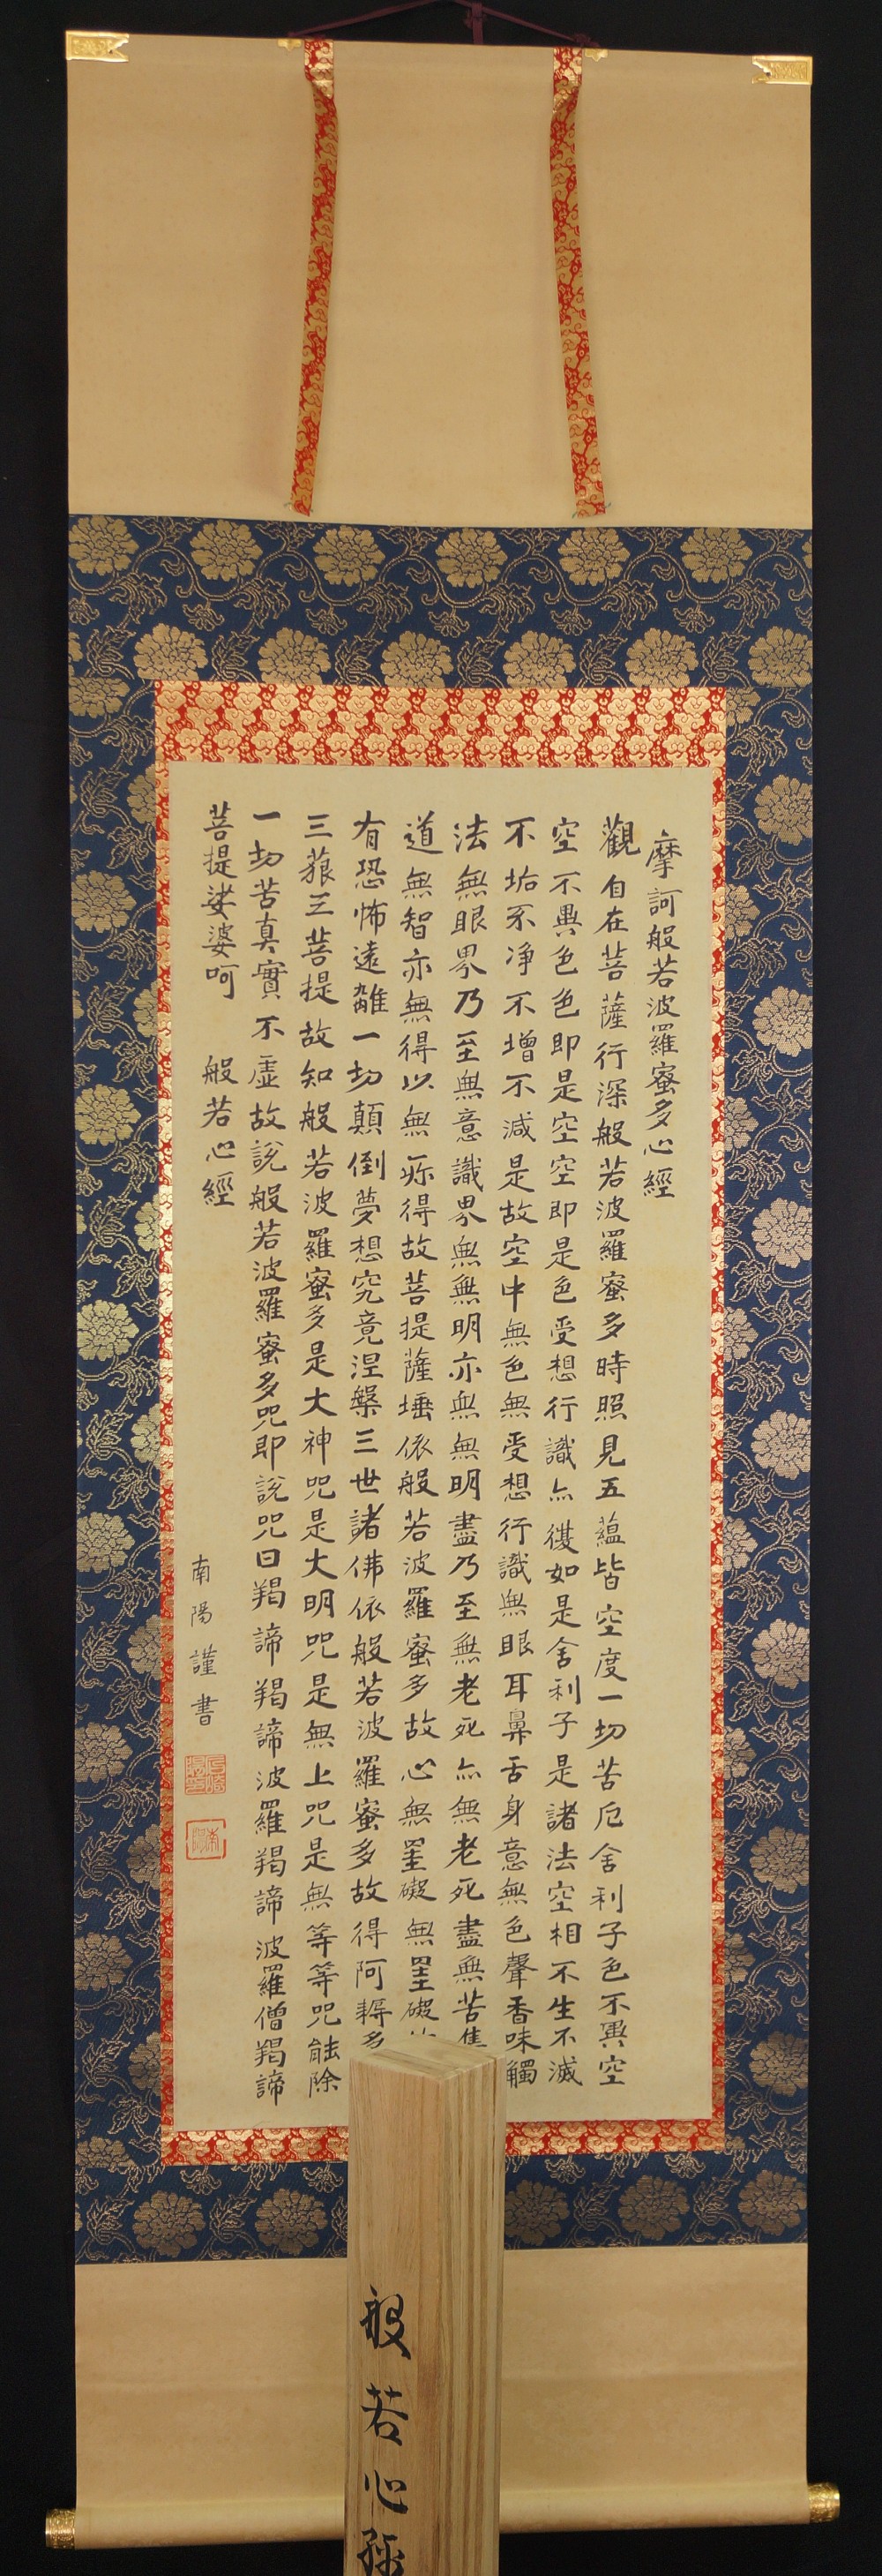 摩訶般若波羅蜜多心經
觀自在菩薩行深般若波羅蜜多時照見五蘊皆空度一切苦厄舍利子色不異空
空不異色色即是空空即是色受想行識亦復如是舍利子是諸法空相不生不滅
不垢不净不增不減是故空中無色無受想行識無眼耳鼻舌身意無色聲香味觸
法無眼界乃至無意識界無無明亦無無明盡乃至無老死亦無老死盡無苦集
道無智亦無得以無所得故菩提薩埵依般若波羅蜜多故心無罣礙無罣礙
有恐怖遠離一切顛倒夢想究竟涅槃三世諸佛依般若波羅蜜多故得阿耨多
三藐三菩提故知般若波羅蜜多是大神咒是大明咒是無上咒是無等等咒能除
一切苦真實不虛故說般若波羅蜜多咒即說咒曰羯諦羯諦波羅羯諦波羅僧羯諦
菩提娑婆呵 般若心經
南陽謹書
般若心經